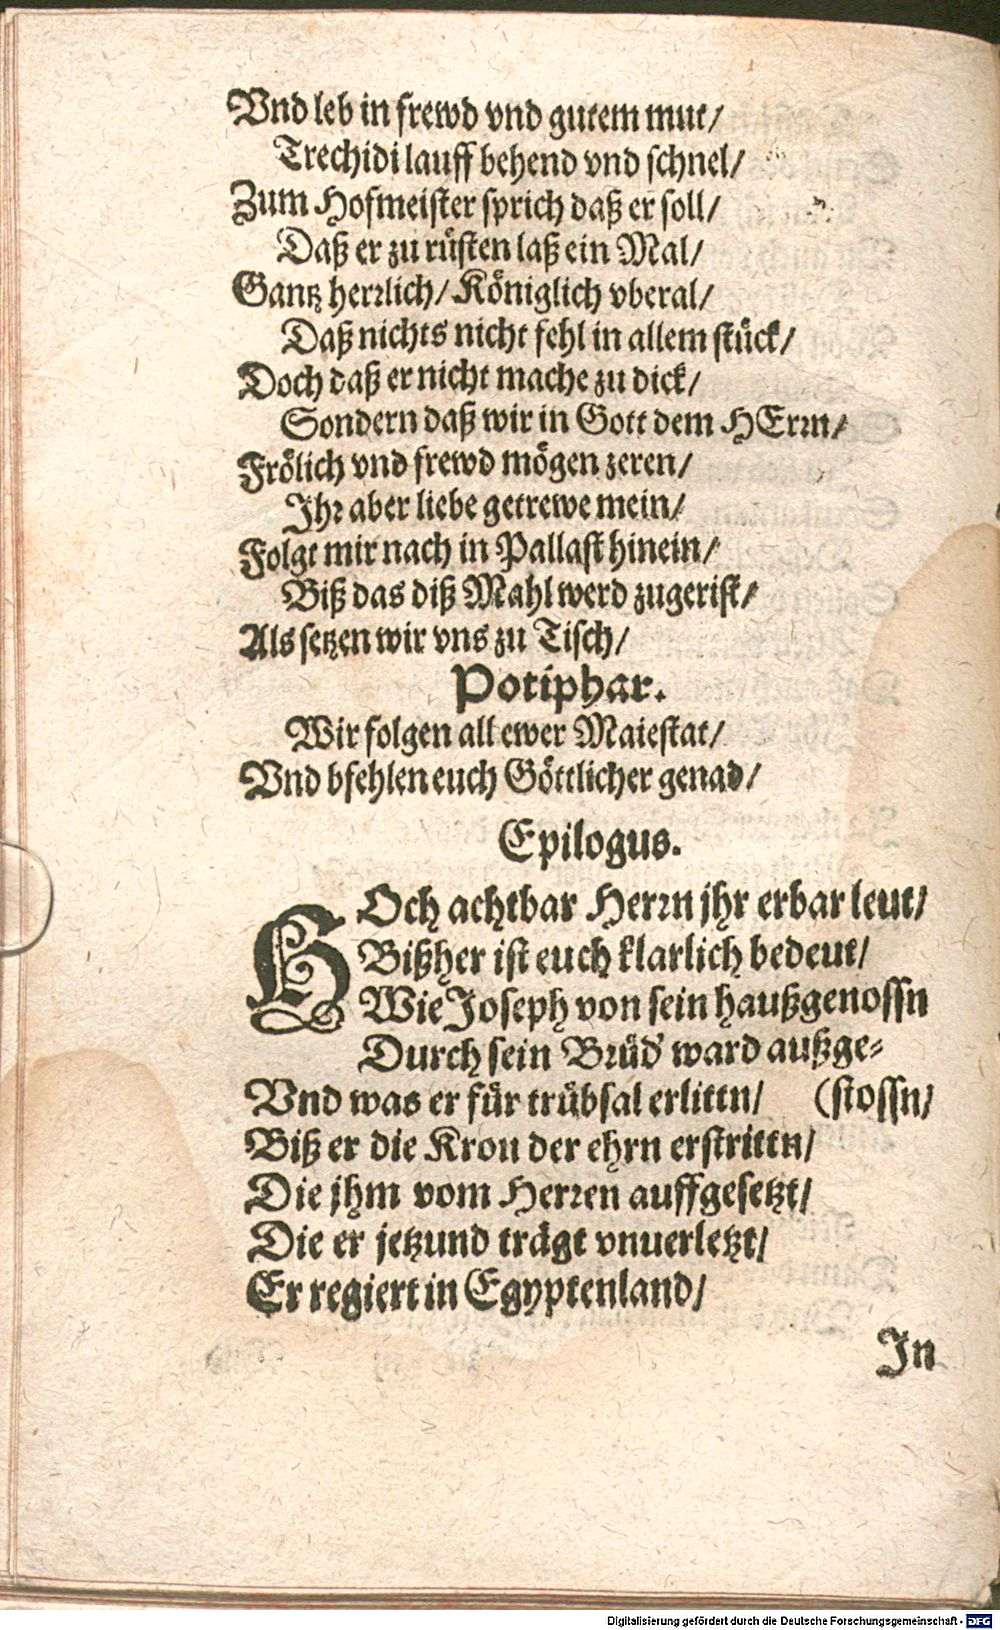 Vnd leb in frewd vnd gutem mut/
Trechidi lauff behend vnd schnel/
Zum Hofmeister sprich daß er soll/
Daß er zu rüsten laß ein Mal/
Gantz herrlich/ Königlich vberal/
Daß nichts nicht fehl in allem stück/
Doch daß er nicht mache zu dick/
Sondern daß wir in Gott dem HErrn/
Frölich vnd frewd mögen zeren/
Ihr aber liebe getrewe mein/
Folgt mir nach in Pallast hinein/
Biß das diß Mahl werd zugerist/
Als setzen wir vns zu Tisch/
Potiphar.
Wir folgen all ewer Maiestat/
Vnd bfehlen euch Göttlicher genad/
Epilogus.
HOch achtbar Herrn jhr erbar leut/
Bißher ist euch klarlich bedeut/
Wie Joseph von sein haußgenossn
Durch sein Brüd' ward außge-
Vnd was er für trübsal erlittn/ (stossn/
Biß er die Kron der ehrn erstrittn/
Die jhm vom Herren auffgesetzt/
Die er jetzund trägt vnuerletzt/
Er regiert in Egyptenland/
In
Digitalisierung gefördert durch die Deutsche Forschungsgemeinschaft - DFG